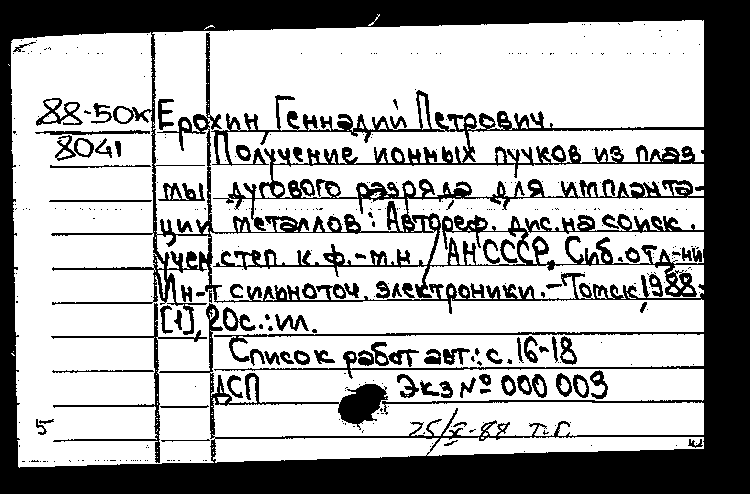 88-50к Ерохин, Геннадий Петрович.
8041 Получение ионных пучков из плаз-
мы дугового разряда для импланта-
ции металлов: Автореф. дис. на соиск.
учен. степ. к. ф.-м.н. / АН СССР, Сиб. отд-ние
Ин-т сильноточ. электроники. - Томск, 1988.
[1], 20с.:ил.
Список работ авт.: с. 16-18
ДСП Экз № 000 003
5 25/X-88 т.г.